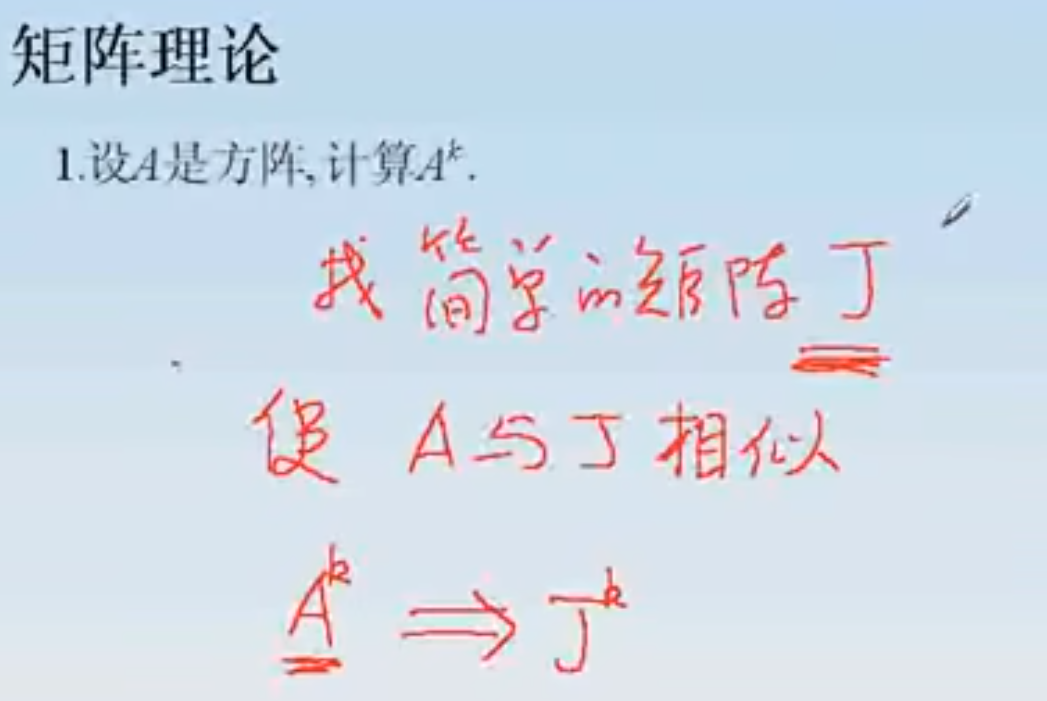 矩阵理论
1.设A是方阵,计算A^k.
找简单的矩阵J
使 A与J相似
A^k ⟹ J^k